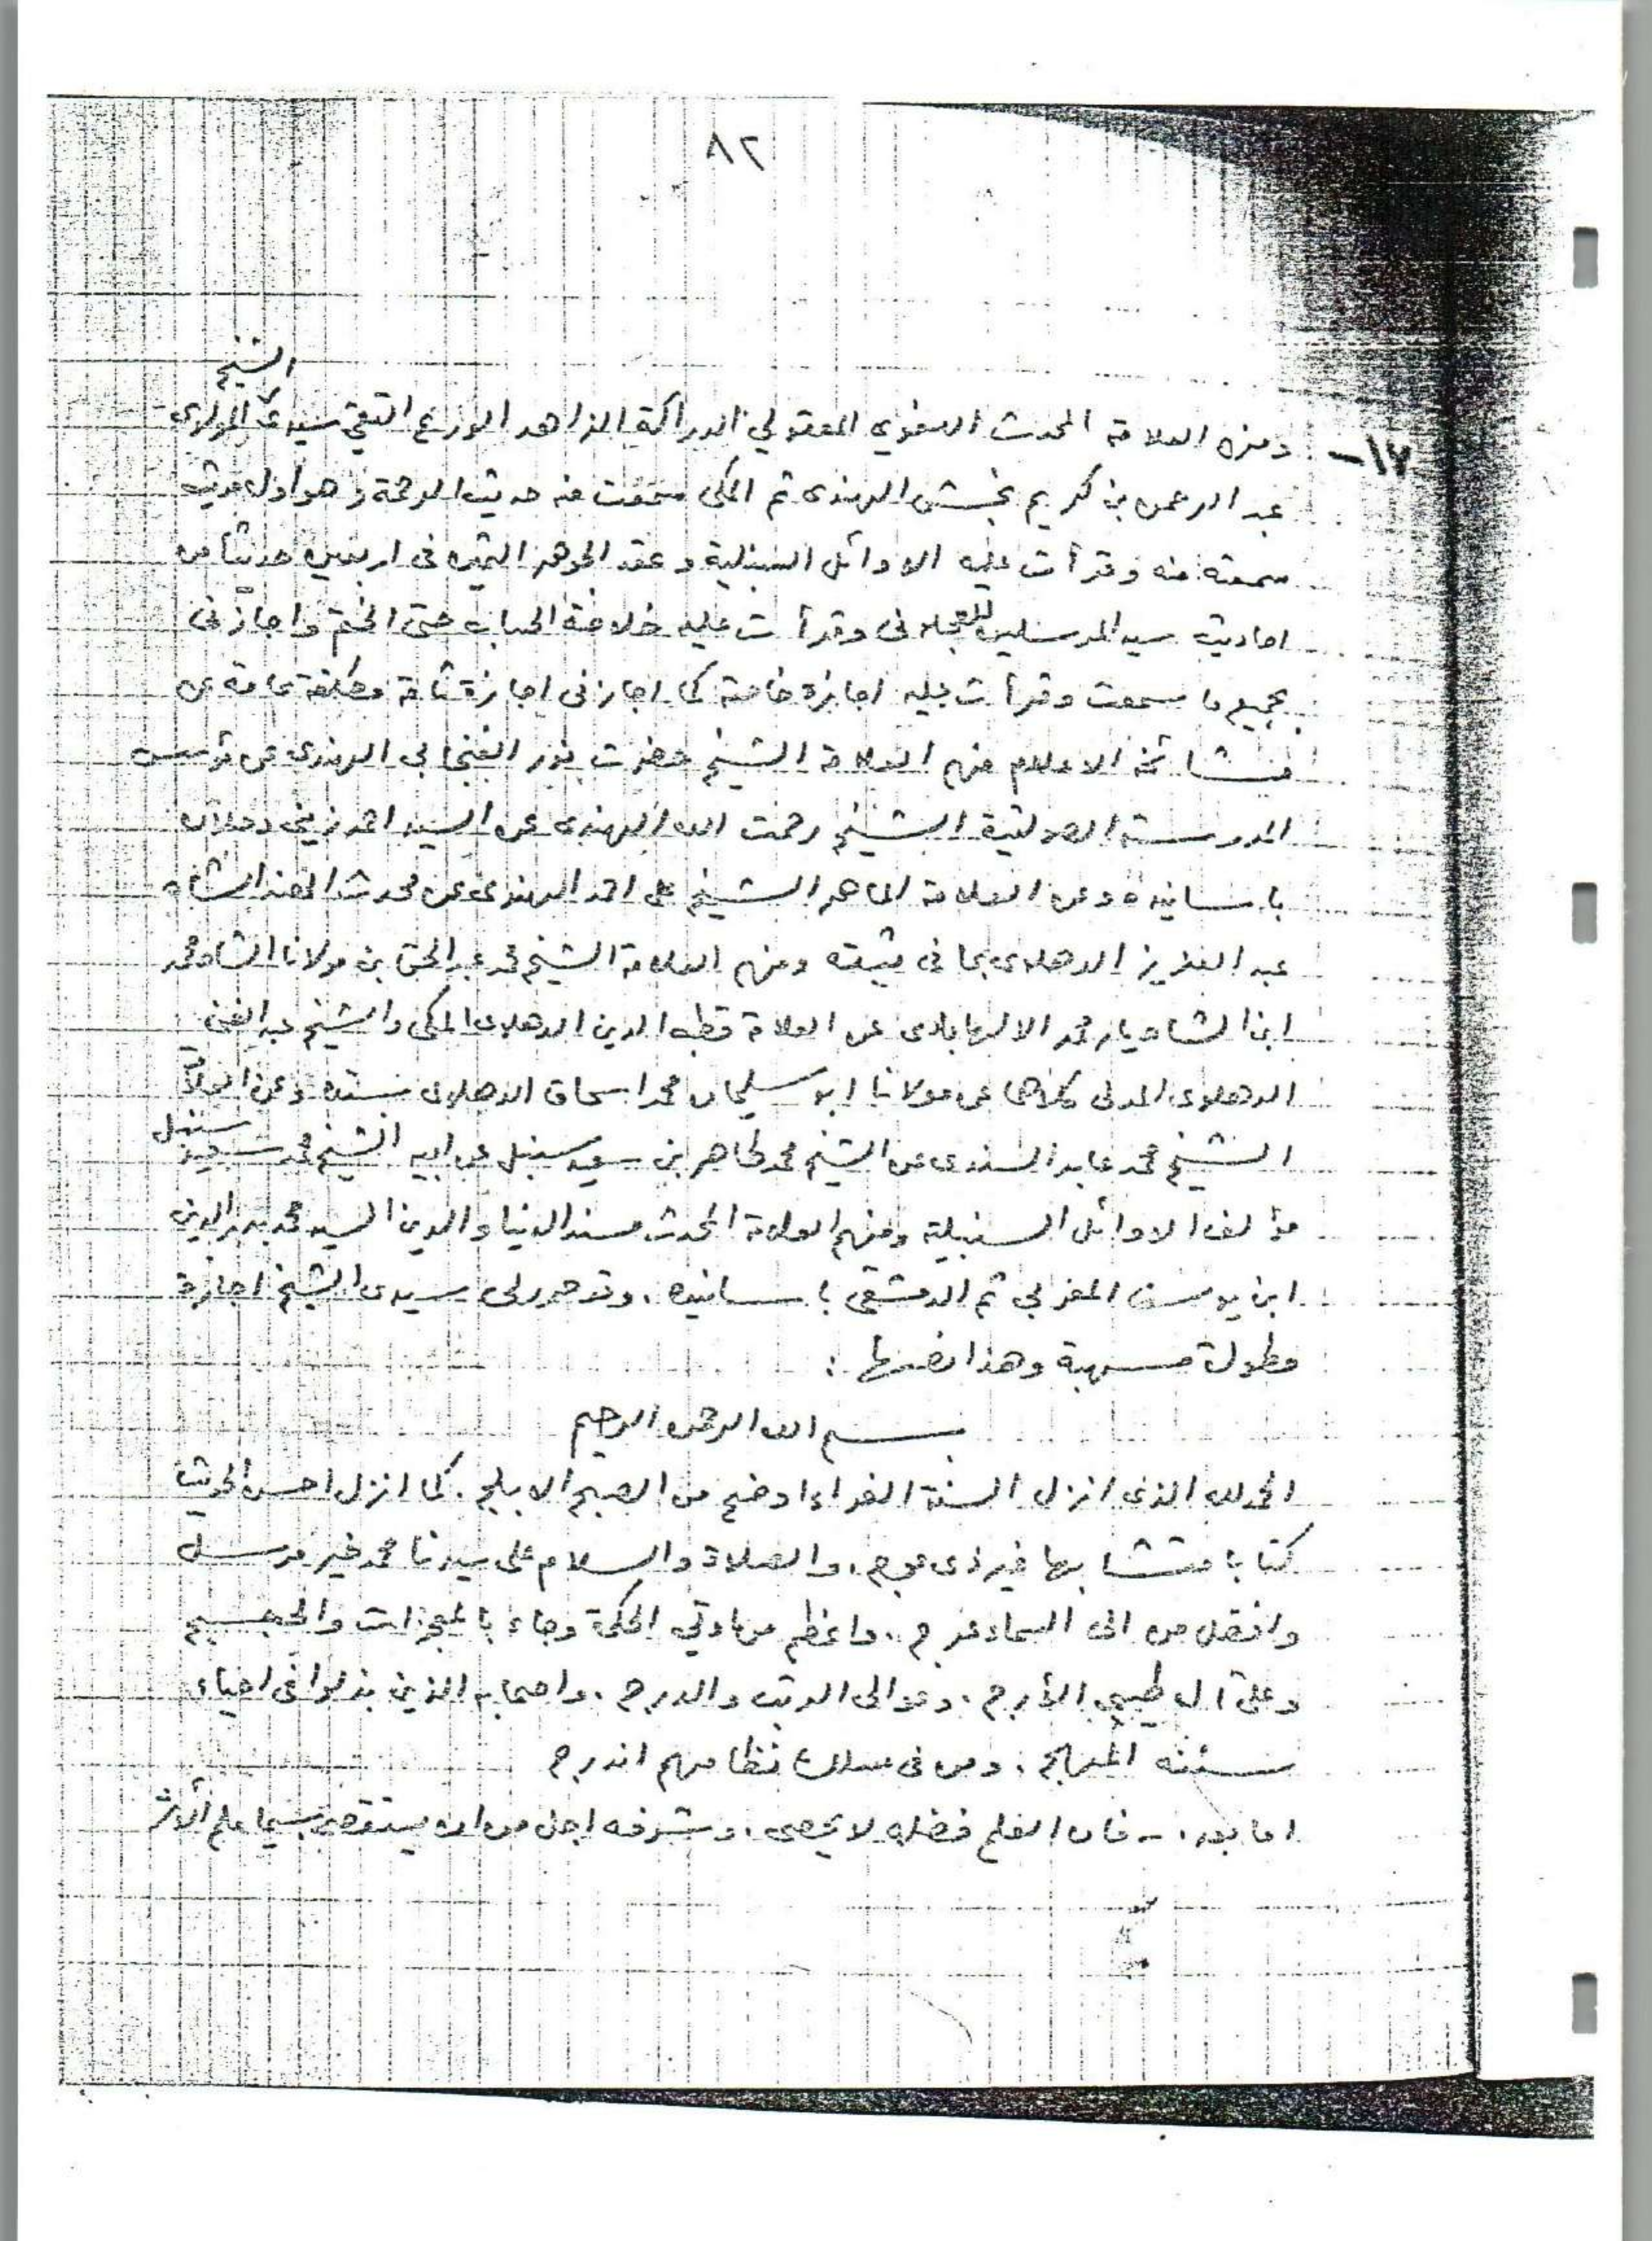 ٨٢
١٧- ومنهم العلامة المحدث اللغوي المعقولي الدراكة الزاهد الورع التقي سيدي الشيخ المولوي
عبد الرحمن بن كريم بخش الهندى ثم المكى سمعت منه حديث الرحمة وهو اول حديث
سمعته منه وقرأت عليه الاوائل السنبلية وعقد الجوهر الثمين فى اربعين حديثا من
احاديث سيد المرسلين للعجلونى وقرأت عليه خلاصة الحساب حتى الختم واجازنى
بجميع ما سمعت وقرأت عليه اجازة خاصة كما اجازنى اجازة تامة مطلقة عامة عن
مشائخه الاعلام منهم العلامة الشيخ حضرت نور الفنجابي الهندى عن مؤسس
المدرسة الصولتية الشيخ رحمت الله الهندى عن السيد احمد زيني دحلان
باسانيده وعن العلامة الماهر الشيخ على احمد الهندى عن محدث الهند الشاه
عبد العزيز الدهلوى بما فى ثبته ومنهم العلامة الشيخ محمد عبد الحق بن مولانا الشاه محمد
ابن الشاه يار محمد الالهابادى عن العلامة قطب الدين الدهلوى المكى والشيخ عبد الغني
الدهلوى المدنى كلاهما عن مولانا ابو سليمان محمد اسحاق الدهلوى بسنده وعن العلامة
الشيخ محمد عابد السندى عن الشيخ محمد طاهر بن سعيد سنبل عن ابيه الشيخ محمد سعيد سنبل
مؤلف الاوائل السنبلية ومنهم العلامة المحدث مسند الدنيا والدين السيد محمد بدر الدين
ابن يوسف المغربي ثم الدمشقي باسانيده . وقد حرر لى سيدى الشيخ اجازة
مطولة مسهبة وهذا نصها :
بسم الله الرحمن الرحيم
الحمد لله الذى انزل السنة الغراء اوضح من الصبح الابلج . كما انزل احسن الحديث
كتابا متشابها غير ذى عوج . والصلاة والسلام على سيدنا محمد خير مرسل
وافضل من الى السماء عرج . واعظم من اوتي الحكمة وجاء بالمعجزات والحجج
وعلى آل طيبي الأرج . وعوالى الرتب والدرج . واصحابه الذين بذلوا فى احياء
سننه المهج . ومن فى سلك نظامهم اندرج
اما بعد . - فان العلم فضله لا يحصى . وشرفه اجل من ان يستقصى سيما علم الأثر